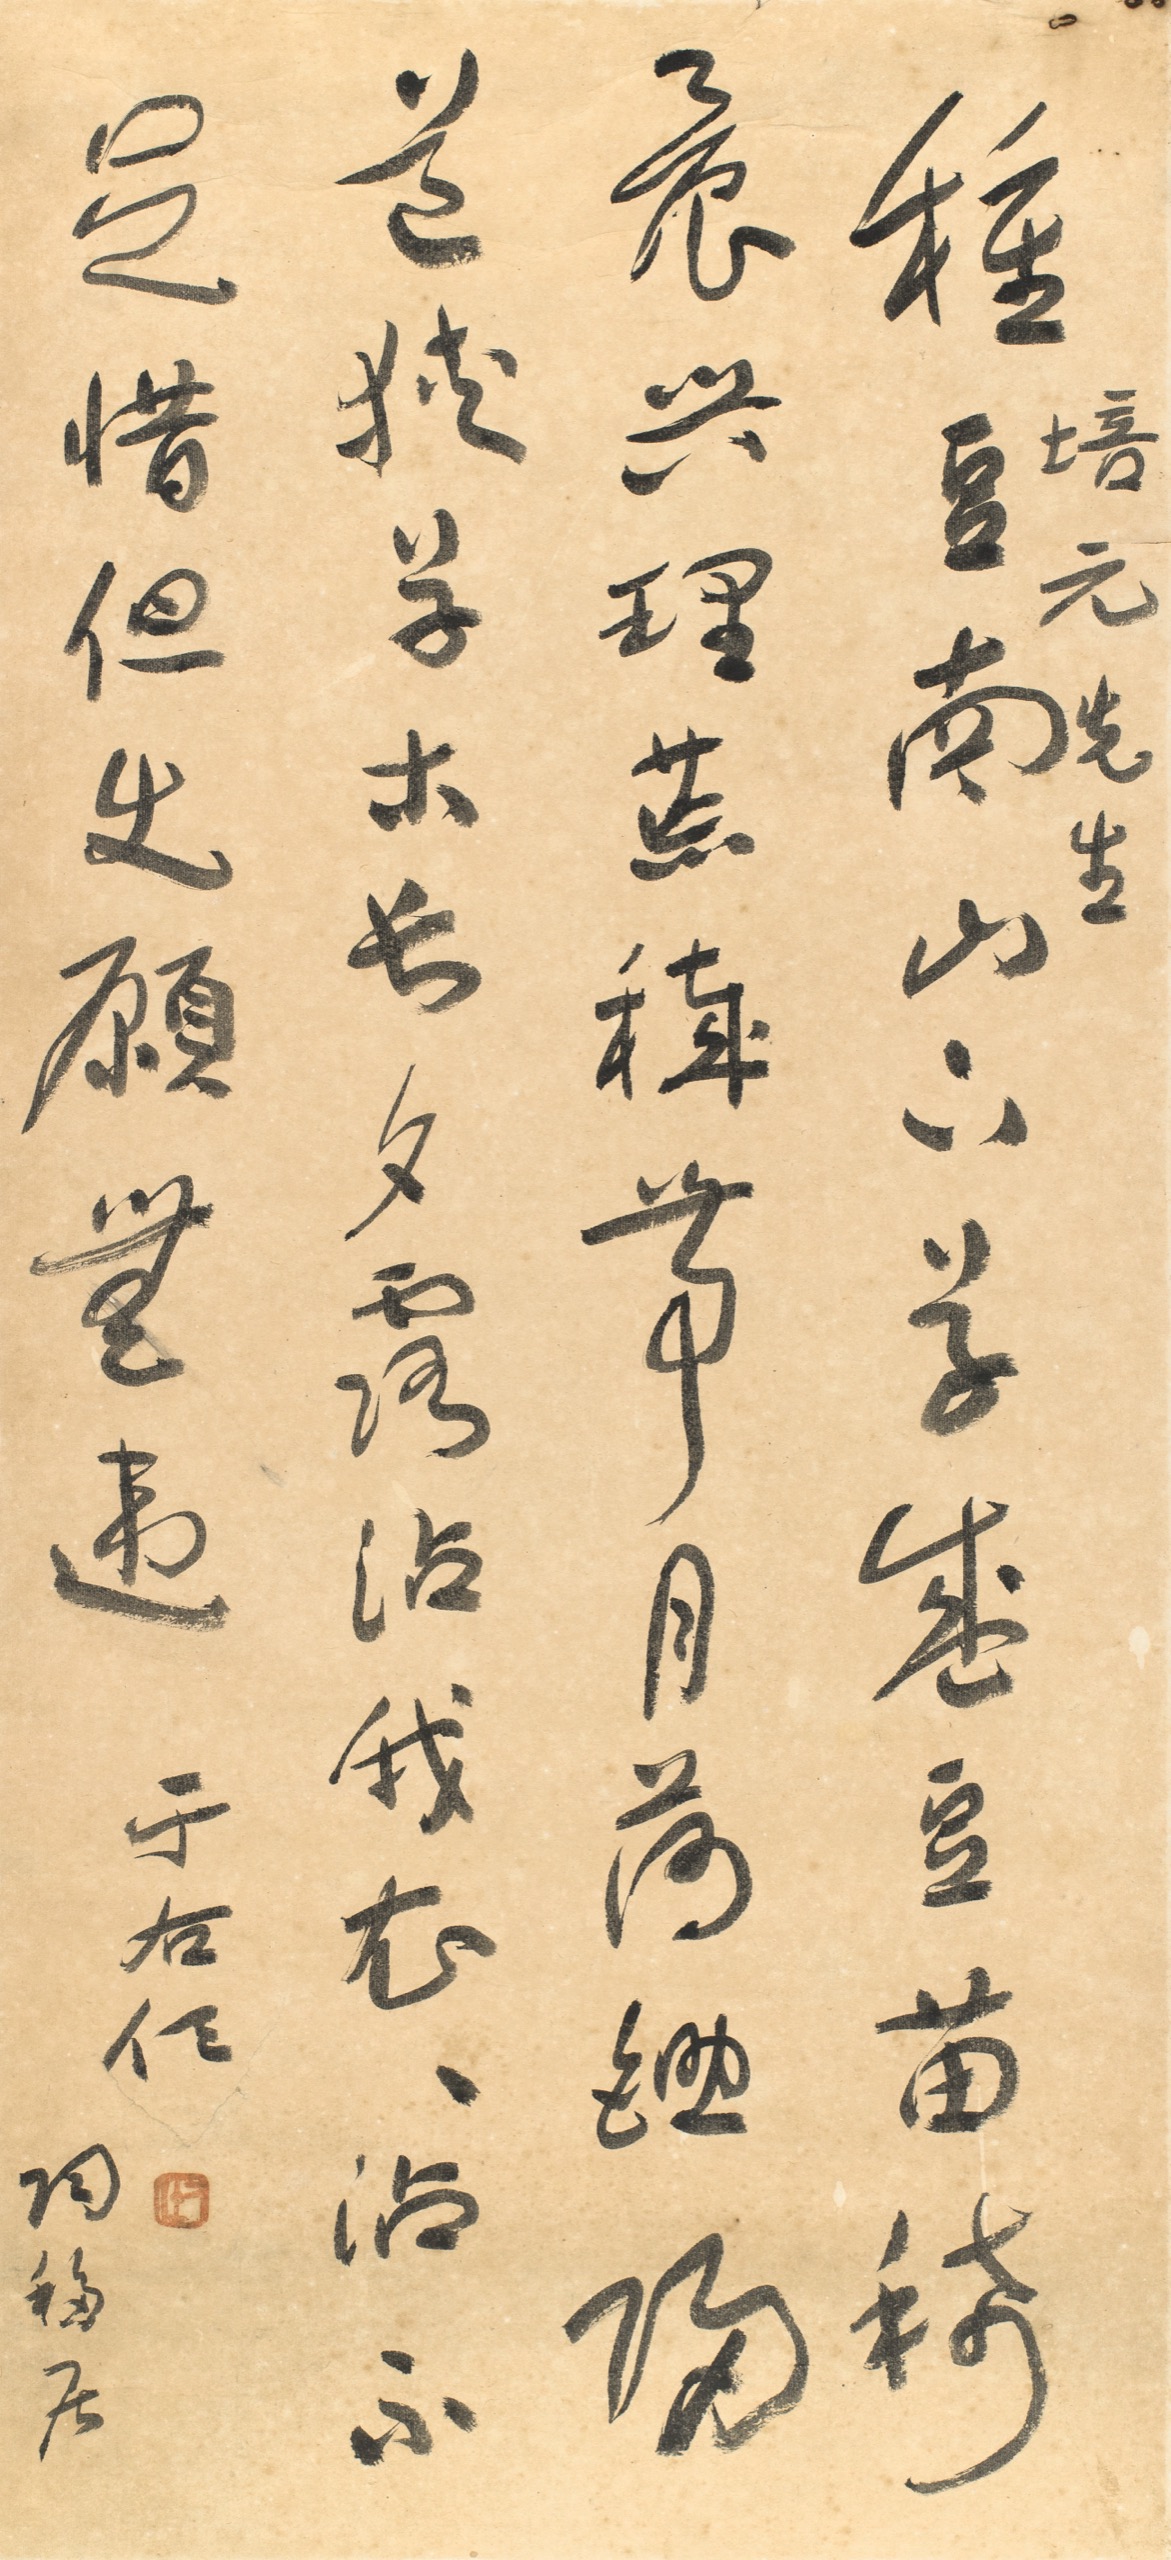 培元先生
種豆南山下草盛豆苗稀
晨興理蕪穢帶月荷鋤歸
道狹草木長夕露沾我衣、沾不
足惜但使願無違
于右任
陶移居